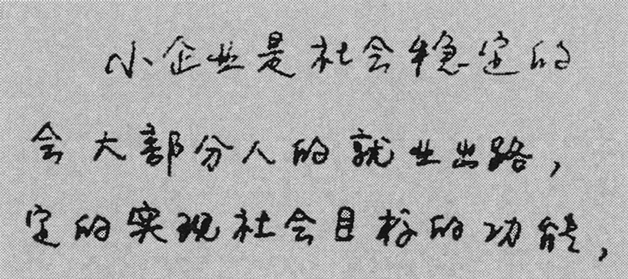 小企业是社会稳定的
会大部分人的就业出路，
定的实现社会目标的功能，